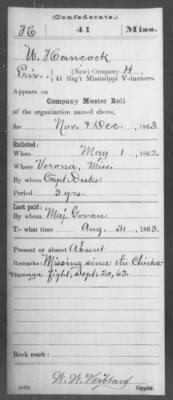 (Confederate.)
H 41 Miss.
W. Hancock
Priv., (New) Company H,
41 Reg't Mississippi Volunteers.
Appears on
Company Muster Roll
of the organization named above,
for Nov. & Dec., 1863.
Enlisted:
When May 1, 1862.
Where Verona, Miss.
By whom Capt. Duke
Period 3 yrs.
Last paid:
By whom Maj. Govan
To what time Aug. 31, 1863.
Present or absent Absent
Remarks: Missing since the Chicka-
mauga fight, Sept. 20, 63.
Book mark:
W. W. Hubbard
Copyist.